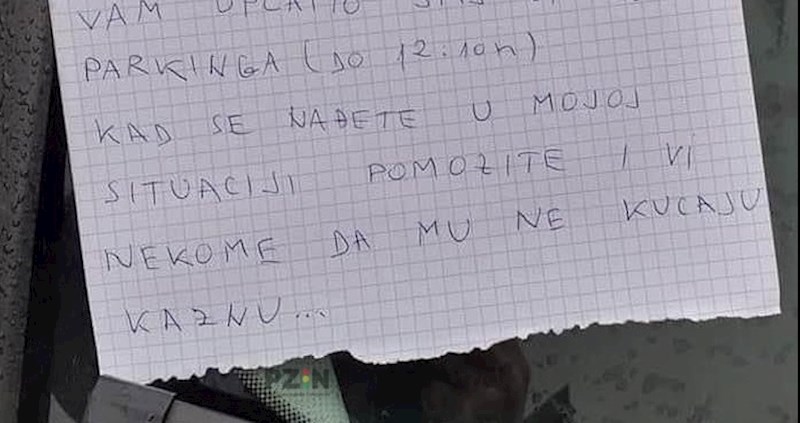 VAM UPLATIO
PARKINGA (DO 12:10h)
KAD SE NAĐETE U MOJOJ
SITUACIJI POMOZITE I VI
NEKOME DA MU NE KUCAJU
KAZNU...
PZIN